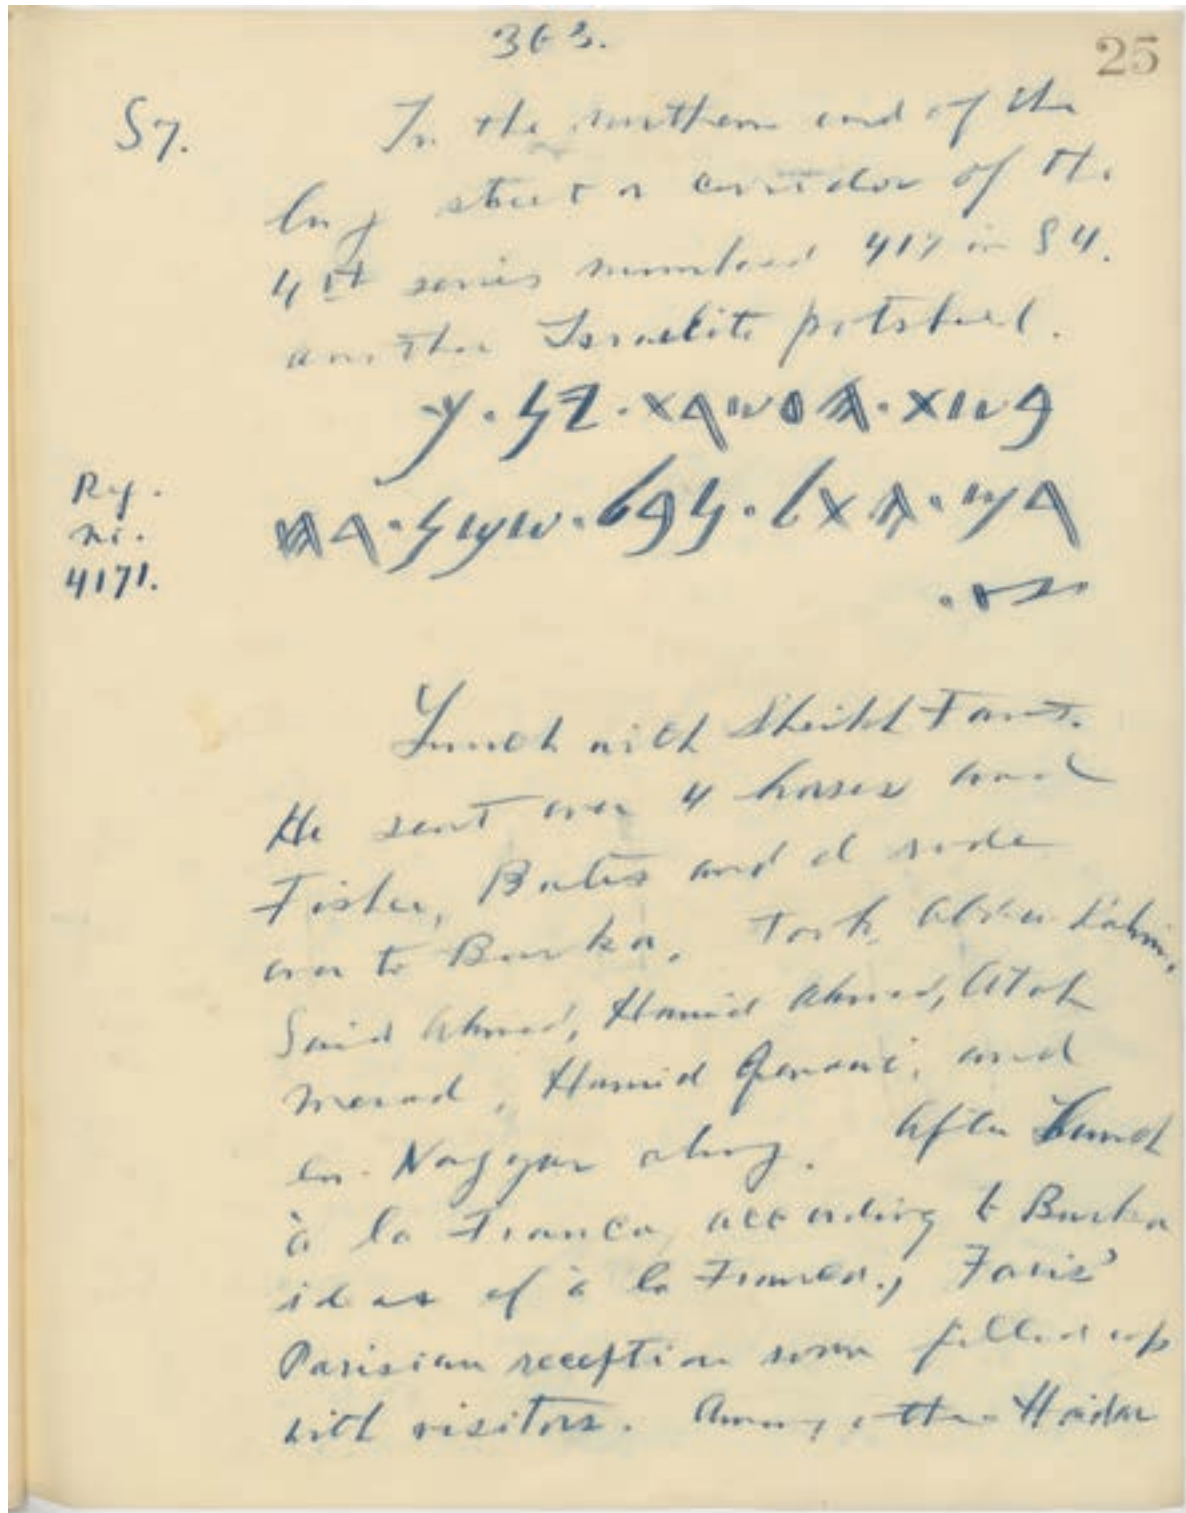 363.
25
S7.
In the northern end of the
long street or corridor of the
4th series numbered 417 in S4.
another Israelite potsherd.
𐤁𐤔𐤕.𐤄𐤏𐤔𐤓𐤕.𐤉𐤍.𐤊
Reg.
No.
4171.
𐤓𐤌.𐤄𐤕𐤋.𐤍𐤁𐤋.𐤔𐤌𐤍.𐤓𐤇
𐤑.
Lunch with Sheikh Faris.
He sent over 4 horses and
Fisher, Bates and I rode
over to Burka. Took
Said Ahmed, Hamid Ahmed,
Hamid and
en-Naggar along. After Lunch
à la Franca, according to Burka
ideas of à la Franca, Faris'
Parisian reception room filled up
with visitors. Among others Haidar